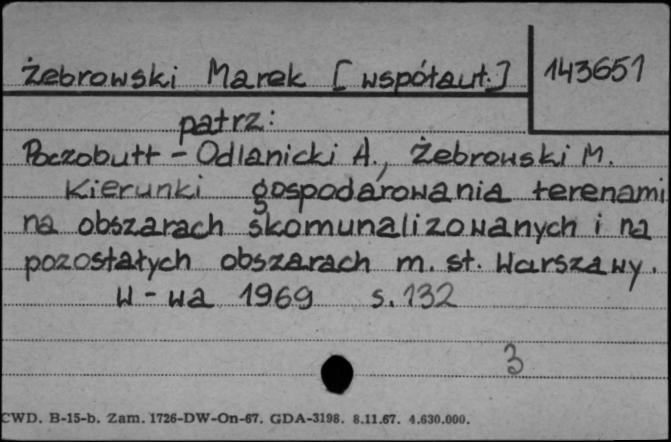 Żebrowski Marek [współaut.] 143651
patrz:
Poczobutt - Odlanicki A., Żebrowski M.
Kierunki gospodarowania terenami
na obszarach skomunalizowanych i na
pozostałych obszarach m. st. Warszawy.
W-wa 1969 s. 132
3
CWD. B-15-b. Zam. 1726-DW-On-67. GDA-3198. 8.11.67. 4.630.000.